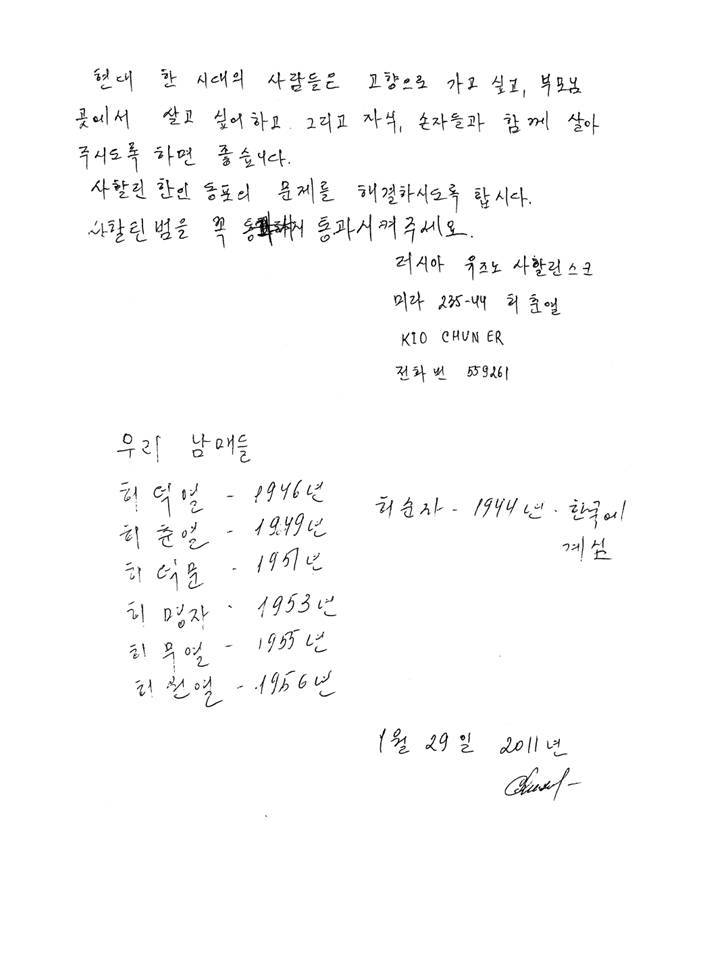 현대 한 시대의 사람들은 고향으로 가고 싶고, 부모님
곳에서 살고 싶어하고 그리고 자식, 손자들과 함께 살아
주시도록 하면 좋습니다.
사할린 한인 동포의 문제를 해결하시도록 합시다.
사할린 법을 꼭 통과시켜주세요.
러시아 유즈노 사할린스크
미라 235-44 허 춘열
KIO CHUN ER
전화 번 559261
우리 남매들
허 덕열 - 1946년
허 춘열 - 1949년
허 덕문 - 1951년
허 명자 - 1953년
허 무열 - 1955년
허 원열 - 1956년
허순자 - 1944년 - 한국에
계심
1월 29일 2011년